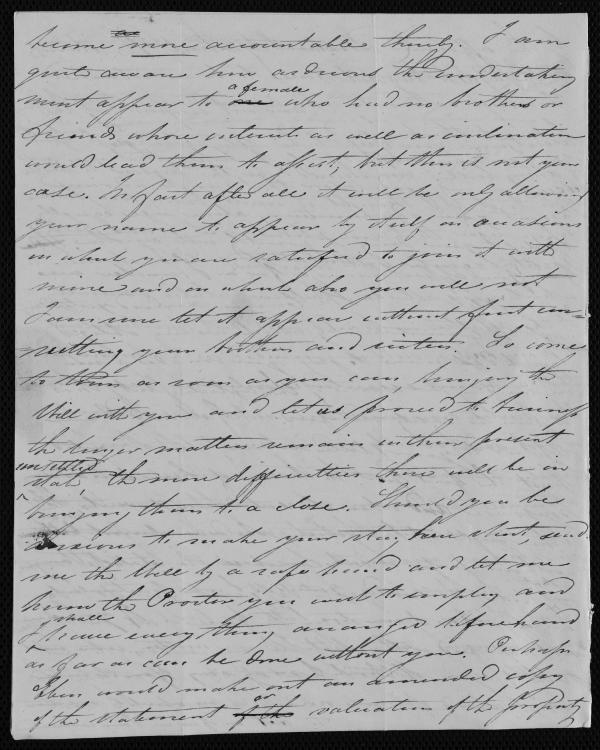 become more accountable thereby. I am
quite aware how arduous the undertaking
must appear to a female who had no brothers or
friends whose interests as well as inclination
would lead them to assist, but this is not your
case. In fact after all it will be only allowing
your name to appear by itself on occasions
in which you are satisfied to join it with
mine and on which also you will not
I am sure let it appear without first con-
sulting your brothers and sisters. So come
to town as soon as you can, bringing the
Will with you and let us proceed to business
the longer matters remain in their present
unsettled state, the more difficulties there will be in
bringing them to a close. Should you be
anxious to make your stay here short, send
me the Will by a safe hand and let me
know the Proctor you wish to employ and
I shall have every thing arranged beforehand
as far as can be done without you. Perhaps
Eben would make out an amended copy
of the statement or valuation of the property